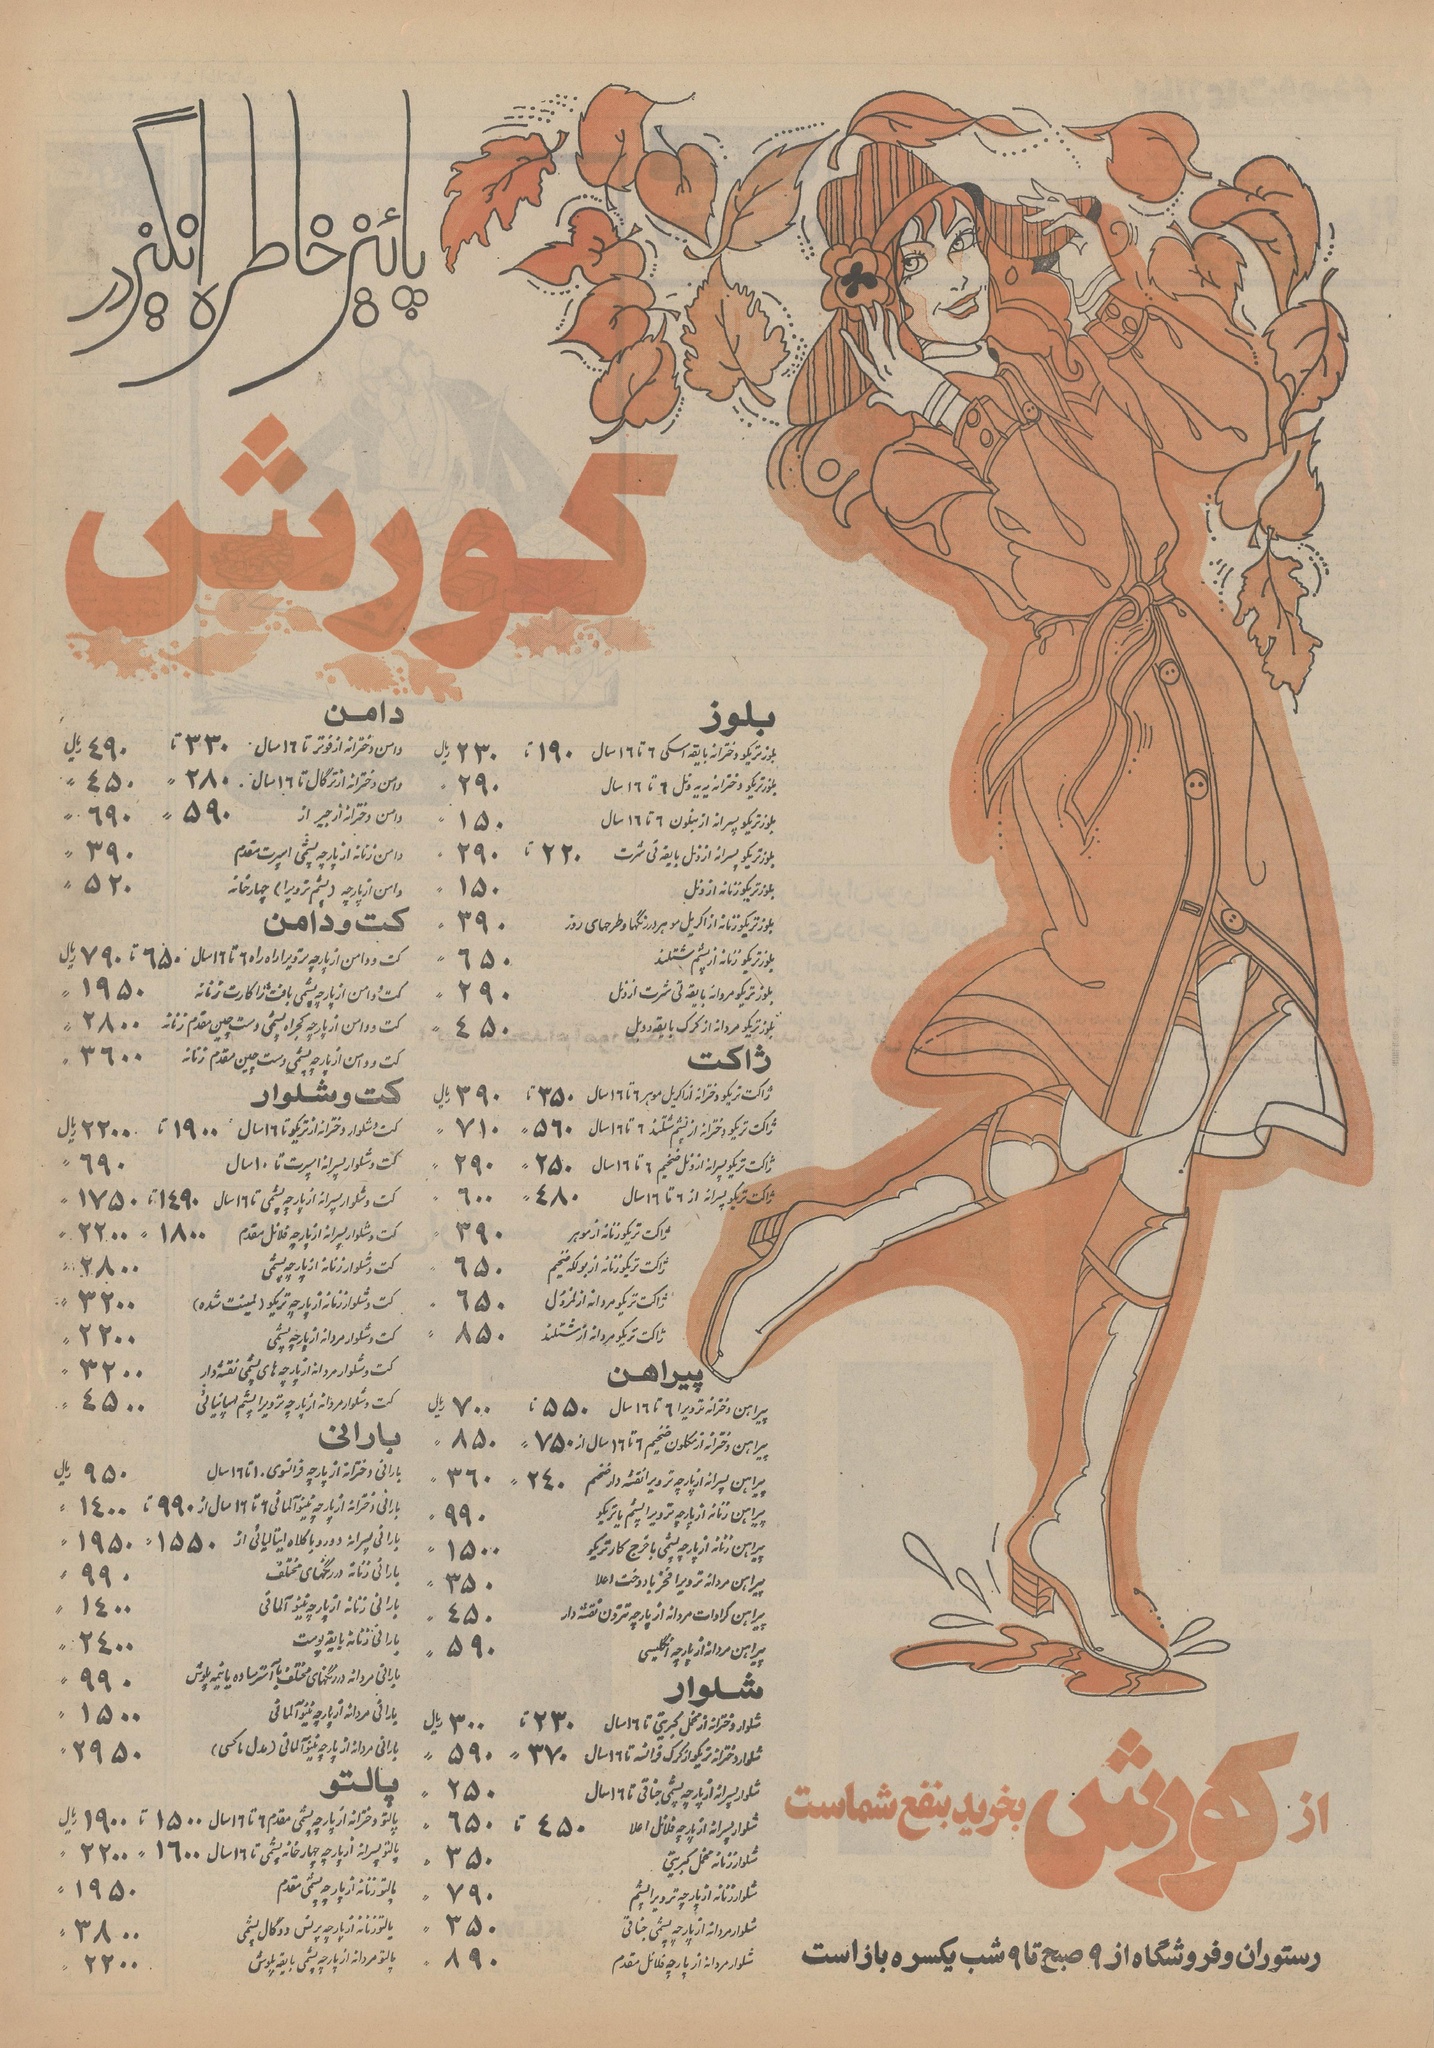 پائیز خاطره انگیز در
کورش
بلوز
بلوز تریکو دخترانه با یقه اسکی ۶ تا ۱۶ سال ۱۹۰ تا ۲۳۰ ریال
بلوز تریکو دخترانه یه یه ونل ۶ تا ۱۶ سال ۲۹۰ "
بلوز تریکو پسرانه از بنلون ۶ تا ۱۶ سال ۱۵۰ "
بلوز تریکو پسرانه از ونل با یقه تی شرت ۲۲۰ تا ۲۹۰ "
بلوز تریکو زنانه از ونل ۱۵۰ "
بلوز تریکو زنانه از اکریل موهر در رنگها و طرحهای روز ۳۹۰ "
بلوز تریکو زنانه از پشم شتلند ۶۵۰ "
بلوز تریکو مردانه با یقه تی شرت از ونل ۲۹۰ "
بلوز تریکو مردانه از کرک با یقه دوبل ۴۵۰ "
ژاکت
ژاکت تریکو دخترانه از اکریل موهر ۶ تا ۱۶ سال ۳۵۰ تا ۳۹۰ ریال
ژاکت تریکو دخترانه از پشم شتلند ۶ تا ۱۶ سال ۵۶۰ " ۷۱۰ "
ژاکت تریکو پسرانه از ونل ضخیم ۶ تا ۱۶ سال ۲۵۰ " ۲۹۰ "
ژاکت تریکو پسرانه از ۶ تا ۱۶ سال ۴۸۰ " ۶۰۰ "
ژاکت تریکو زنانه از موهر ۳۹۰ "
ژاکت تریکو زنانه از بوکله ضخیم ۶۵۰ "
ژاکت تریکو مردانه از لمزول ۶۵۰ "
ژاکت تریکو مردانه از شتلند ۸۵۰ "
پیراهن
پیراهن دخترانه ترویرا ۶ تا ۱۶ سال ۵۵۰ تا ۷۰۰ ریال
پیراهن دخترانه از مکلون ضخیم ۶ تا ۱۶ سال از ۷۵۰ " ۸۵۰ "
پیراهن پسرانه از پارچه ترویرا نقشه دار ضخیم ۲۴۰ " ۳۶۰ "
پیراهن زنانه از پارچه ترویرا پشم یا تریکو ۹۹۰ "
پیراهن زنانه از پارچه پشمی با خرج کار تریکو ۱۵۰۰ "
پیراهن مردانه ترویرا فخر با دوخت اعلا ۳۵۰ "
پیراهن کراوات مردانه از پارچه تترون نقشه دار ۴۵۰ "
پیراهن مردانه از پارچه انگلیسی ۵۹۰ "
شلوار
شلوار دخترانه از مخمل کبریتی تا ۱۶ سال ۲۳۰ تا ۳۰۰ ریال
شلوار دخترانه تریکو از کرک فرانسه تا ۱۶ سال ۳۷۰ " ۵۹۰ "
شلوار پسرانه از پارچه پشمی جناقی تا ۱۶ سال ۲۵۰ "
شلوار پسرانه از پارچه فلانل اعلا ۴۵۰ تا ۶۵۰ "
شلوار زنانه مخمل کبریتی ۳۵۰ "
شلوار زنانه از پارچه ترویرا پشم ۷۹۰ "
شلوار مردانه از پارچه پشمی جناقی ۳۵۰ "
شلوار مردانه از پارچه فلانل مقدم ۸۹۰ "
دامن
دامن دخترانه از فوتر تا ۱۶ سال ۳۳۰ تا ۴۹۰ ریال
دامن دخترانه از ترگال تا ۱۶ سال ۲۸۰ " ۴۵۰ "
دامن دخترانه از جیر از ۵۹۰ " ۶۹۰ "
دامن زنانه از پارچه پشمی اسپرت مقدم ۳۹۰ "
دامن از پارچه (پشم ترویرا) چهارخانه ۵۲۰ "
کت و دامن
کت و دامن از پارچه ترویرا راه راه ۶ تا ۱۶ سال ۶۵۰ تا ۷۹۰ ریال
کت و دامن از پارچه پشمی بافت ژاکارت زنانه ۱۹۵۰ "
کت و دامن از پارچه کجراه پشمی دست چین مقدم زنانه ۲۸۰۰ "
کت و دامن از پارچه پشمی دست چین مقدم زنانه ۳۶۰۰ "
کت و شلوار
کت و شلوار دخترانه از تریکو تا ۱۶ سال ۱۹۰۰ تا ۲۲۰۰ ریال
کت و شلوار پسرانه اسپرت تا ۱۰ سال ۶۹۰ "
کت و شلوار پسرانه از پارچه پشمی تا ۱۶ سال ۱۴۹۰ تا ۱۷۵۰ "
کت و شلوار پسرانه از پارچه فلانل مقدم ۱۸۰۰ " ۲۲۰۰ "
کت و شلوار زنانه از پارچه پشمی ۲۸۰۰ "
کت و شلوار زنانه از پارچه تریکو (لمینت شده) ۳۲۰۰ "
کت و شلوار مردانه از پارچه پشمی ۲۲۰۰ "
کت و شلوار مردانه از پارچه های پشمی نقشه دار ۳۲۰۰ "
کت و شلوار مردانه از پارچه ترویرا پشم اسپانیائی ۴۵۰۰ "
بارانی
بارانی دخترانه از پارچه فرانسوی ۱۰ تا ۱۶ سال ۹۵۰ ریال
بارانی دخترانه از پارچه نینو آلمانی ۶ تا ۱۶ سال از ۹۹۰ تا ۱۴۰۰ "
بارانی پسرانه دورو با کلاه ایتالیائی از ۱۵۵۰ " ۱۹۵۰ "
بارانی زنانه در رنگهای مختلف ۹۹۰ "
بارانی زنانه از پارچه نینو آلمانی ۱۴۰۰ "
بارانی زنانه با یقه پوست ۲۴۰۰ "
بارانی مردانه در رنگهای مختلف با آستر ساده یا نیمه پلوش ۹۹۰ "
بارانی مردانه از پارچه نینو آلمانی ۱۵۰۰ "
بارانی مردانه از پارچه نینو آلمانی (مدل ماکسی) ۲۹۵۰ "
پالتو
پالتو دخترانه از پارچه پشمی مقدم ۶ تا ۱۶ سال ۱۵۰۰ تا ۱۹۰۰ ریال
پالتو پسرانه از پارچه چهارخانه پشمی تا ۱۶ سال ۱۶۰۰ " ۲۲۰۰ "
پالتو زنانه از پارچه پشمی مقدم ۱۹۵۰ "
پالتو زنانه از پارچه پرنس دوگال پشمی ۳۸۰۰ "
پالتو مردانه از پارچه پشمی با یقه پلوش ۲۲۰۰ "
از کورش بخرید بنفع شماست
رستوران و فروشگاه از ۹ صبح تا ۹ شب یکسره باز است